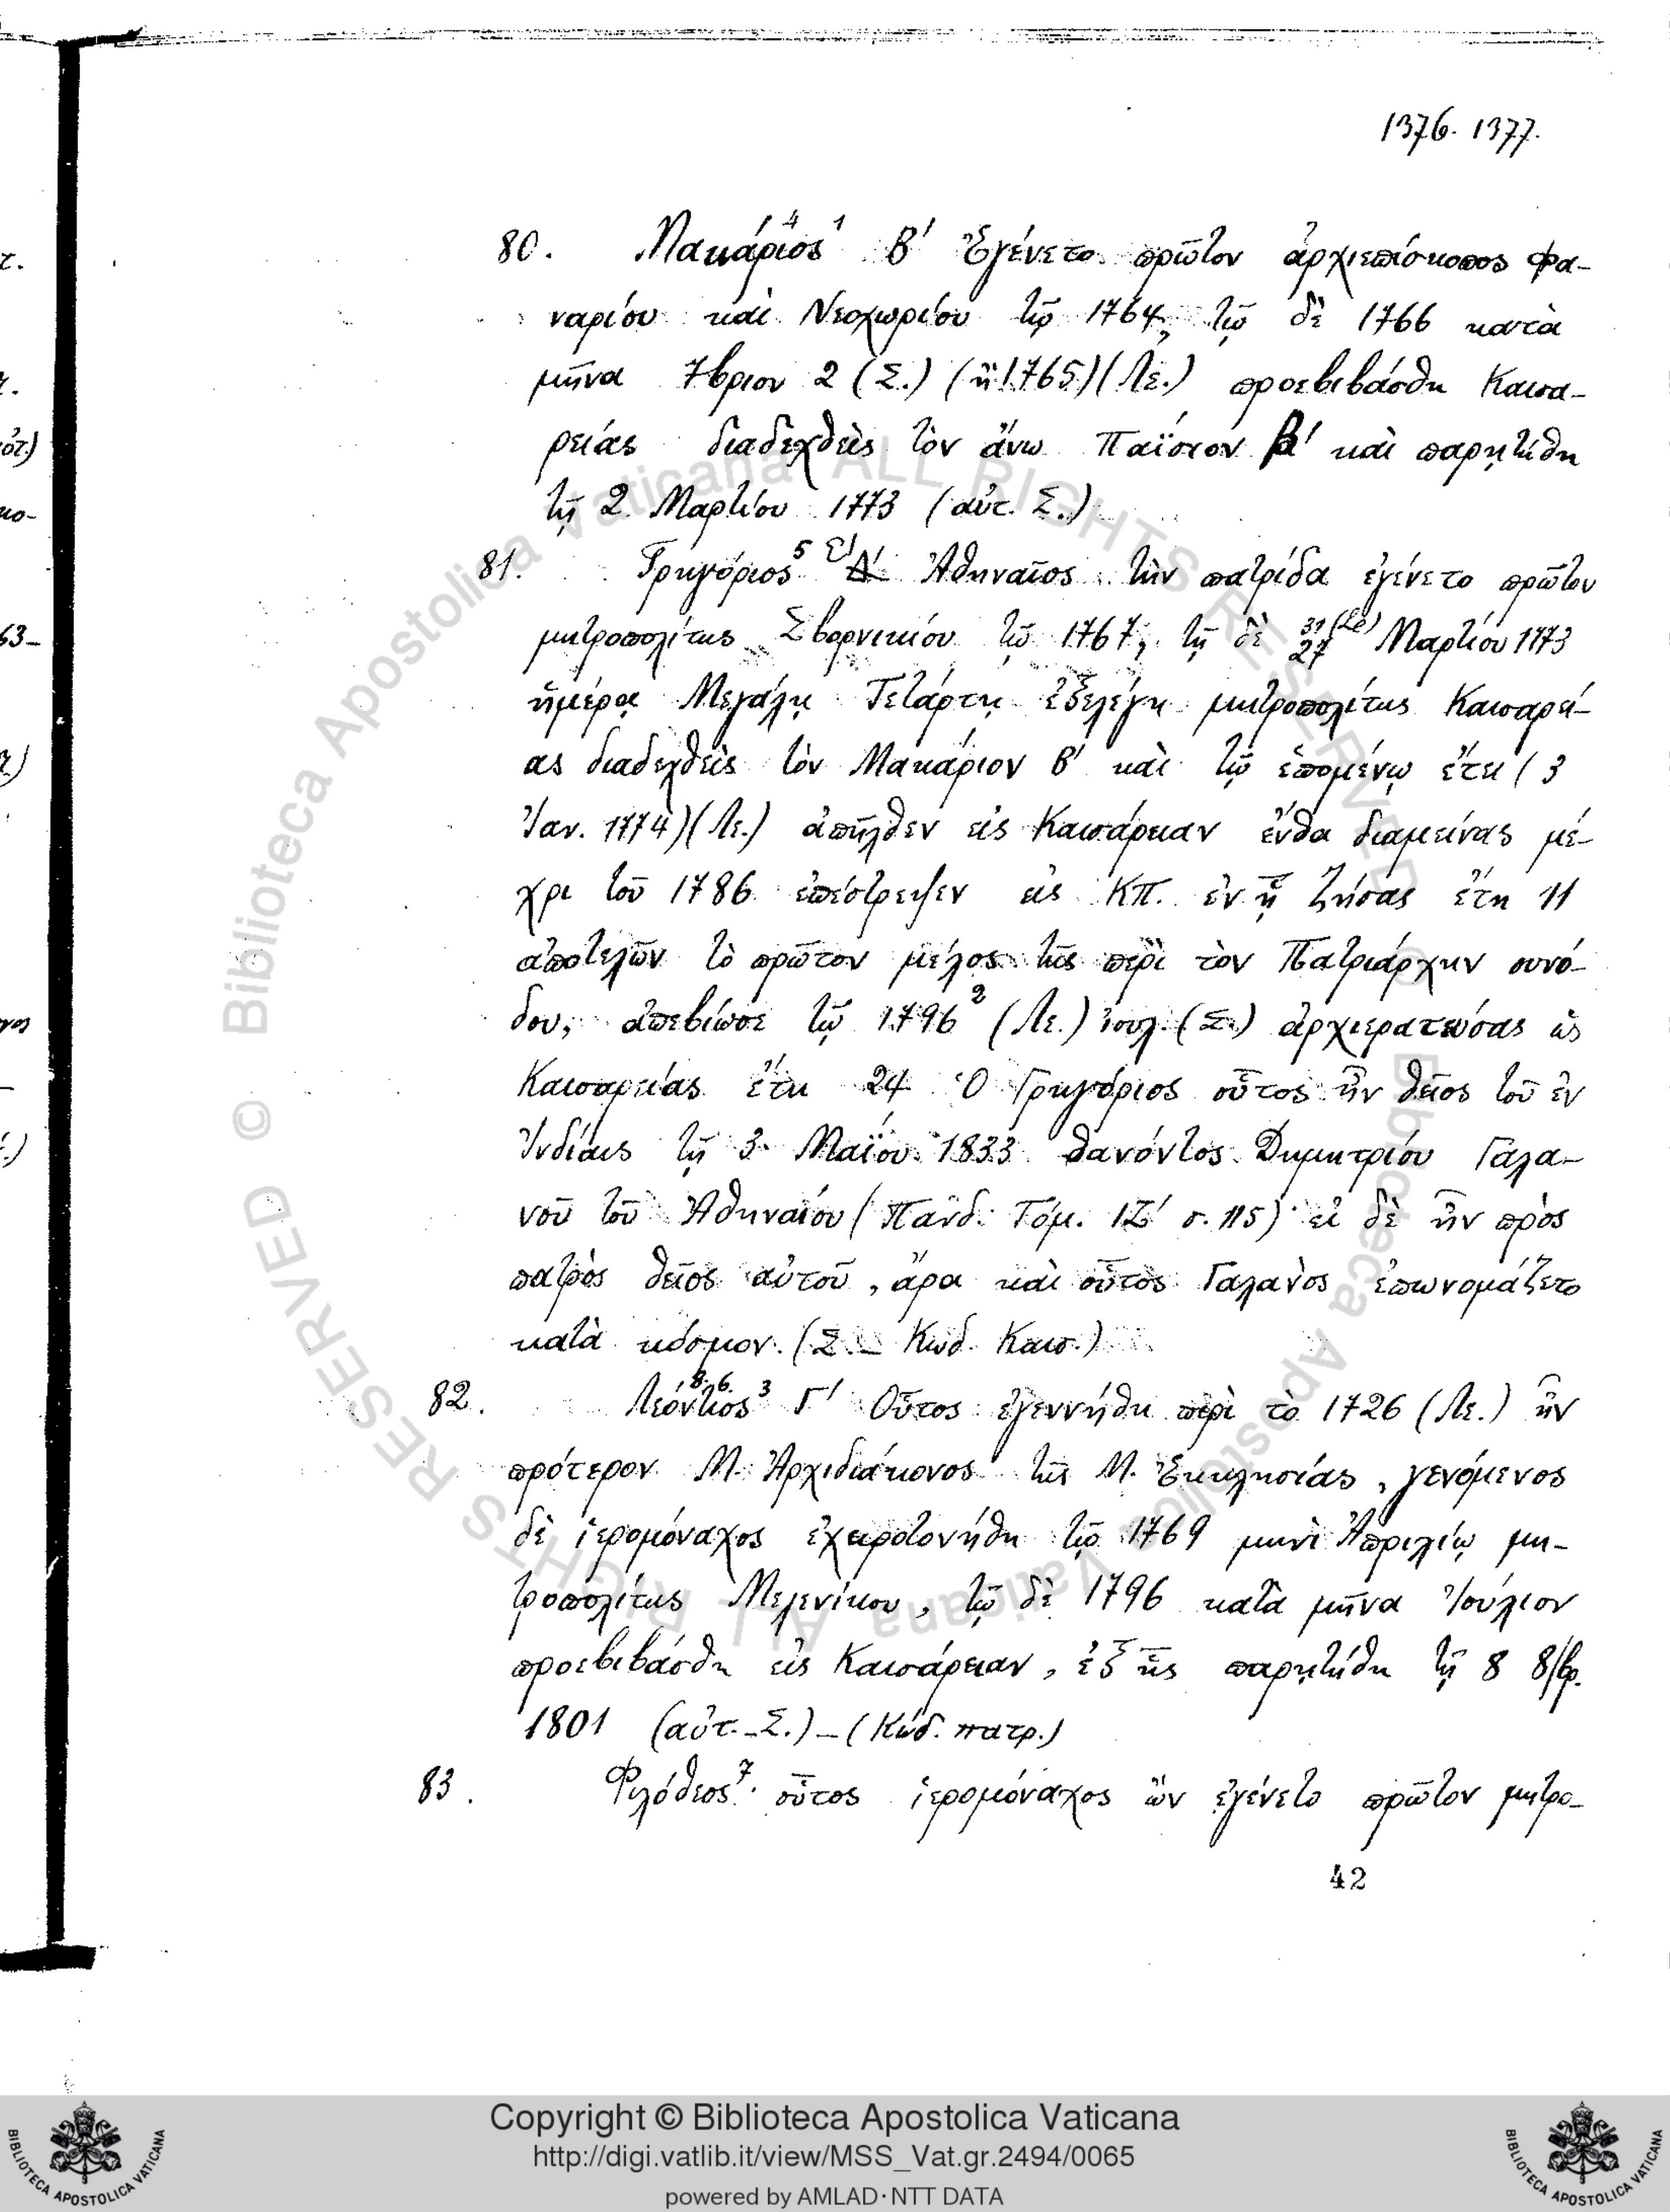 1376. 1377.
80. Μακάριος 4 1 Β' Ἐγένετο πρῶτον ἀρχιεπίσκοπος Φα-
ναρίου καὶ Νεοχωρίου τῷ 1764, τῷ δὲ 1766 κατὰ
μῆνα 7βριον 2 (Σ.) (ἢ 1765) (Λε.) προεβιβάσθη Καισα-
ρείας διαδεχθεὶς τὸν ἄνω Παΐσιον β' καὶ παρῃτήθη
τῇ 2 Μαρτίου 1773 (αὐτ. Σ.)
81. Γρηγόριος 5 Ε' Δ' Ἀθηναῖος τὴν πατρίδα ἐγένετο πρῶτον
μητροπολίτης Σβορνικίου τῷ 1767, τῇ δὲ 31 (Λε) 27 Μαρτίου 1773
ἡμέρᾳ Μεγάλῃ Τετάρτῃ ἐξελέγη μητροπολίτης Καισαρεί-
ας διαδεχθεὶς τὸν Μακάριον Β' καὶ τῷ ἑπομένῳ ἔτει (3
Ἰαν. 1774) (Λε.) ἀπῆλθεν εἰς Καισάρειαν ἔνθα διαμείνας μέ-
χρι τοῦ 1786 ἐπέστρεψεν εἰς ΚΠ. ἐν ᾗ ζήσας ἔτη 11
ἀποτελῶν τὸ πρῶτον μέλος τῆς περὶ τὸν Πατριάρχην συνό-
δου, ἀπεβίωσε τῷ 1796 2 (Λε.) ἰουλ. (Σ.) ἀρχιερατεύσας ὡς
Καισαρείας ἔτη 24 Ὁ Γρηγόριος οὗτος ἦν θεῖος τοῦ ἐν
Ἰνδίαις τῇ 3 Μαΐου 1833 θανόντος Δημητρίου Γαλα-
νοῦ τοῦ Ἀθηναίου (Πανδ. Τόμ. ΙΖ' σ. 115)· εἰ δὲ ἦν πρὸς
πατρὸς θεῖος αὐτοῦ, ἄρα καὶ οὗτος Γαλανὸς ἐπωνομάζετο
κατὰ κόσμον. (Σ. – Κωδ. Καισ.)
82. Λεόντιος 8.6. 3 Γ' Οὗτος ἐγεννήθη περὶ τὸ 1726 (Λε.) ἦν
πρότερον Μ. Ἀρχιδιάκονος τῆς Μ. Ἐκκλησίας, γενόμενος
δὲ ἱερομόναχος ἐχειροτονήθη τῷ 1769 μηνὶ Ἀπριλίῳ μη-
τροπολίτης Μελενίκου, τῷ δὲ 1796 κατὰ μῆνα Ἰούλιον
προεβιβάσθη εἰς Καισάρειαν, ἐξ ἧς παρῃτήθη τῇ 8 8/βρ.
1801 (αὐτ. – Σ.) – (Κώδ. πατρ.)
83. Φιλόθεος 7· οὗτος ἱερομόναχος ὢν ἐγένετο πρῶτον μητρο-
42
© Biblioteca Apostolica Vaticana ALL RIGHTS RESERVED
© Biblioteca Apostolica Vaticana ALL RIGHTS RESERVED
Copyright © Biblioteca Apostolica Vaticana
http://digi.vatlib.it/view/MSS_Vat.gr.2494/0065
powered by AMLAD·NTT DATA
BIBLIOTECA APOSTOLICA VATICANA
BIBLIOTECA APOSTOLICA VATICANA